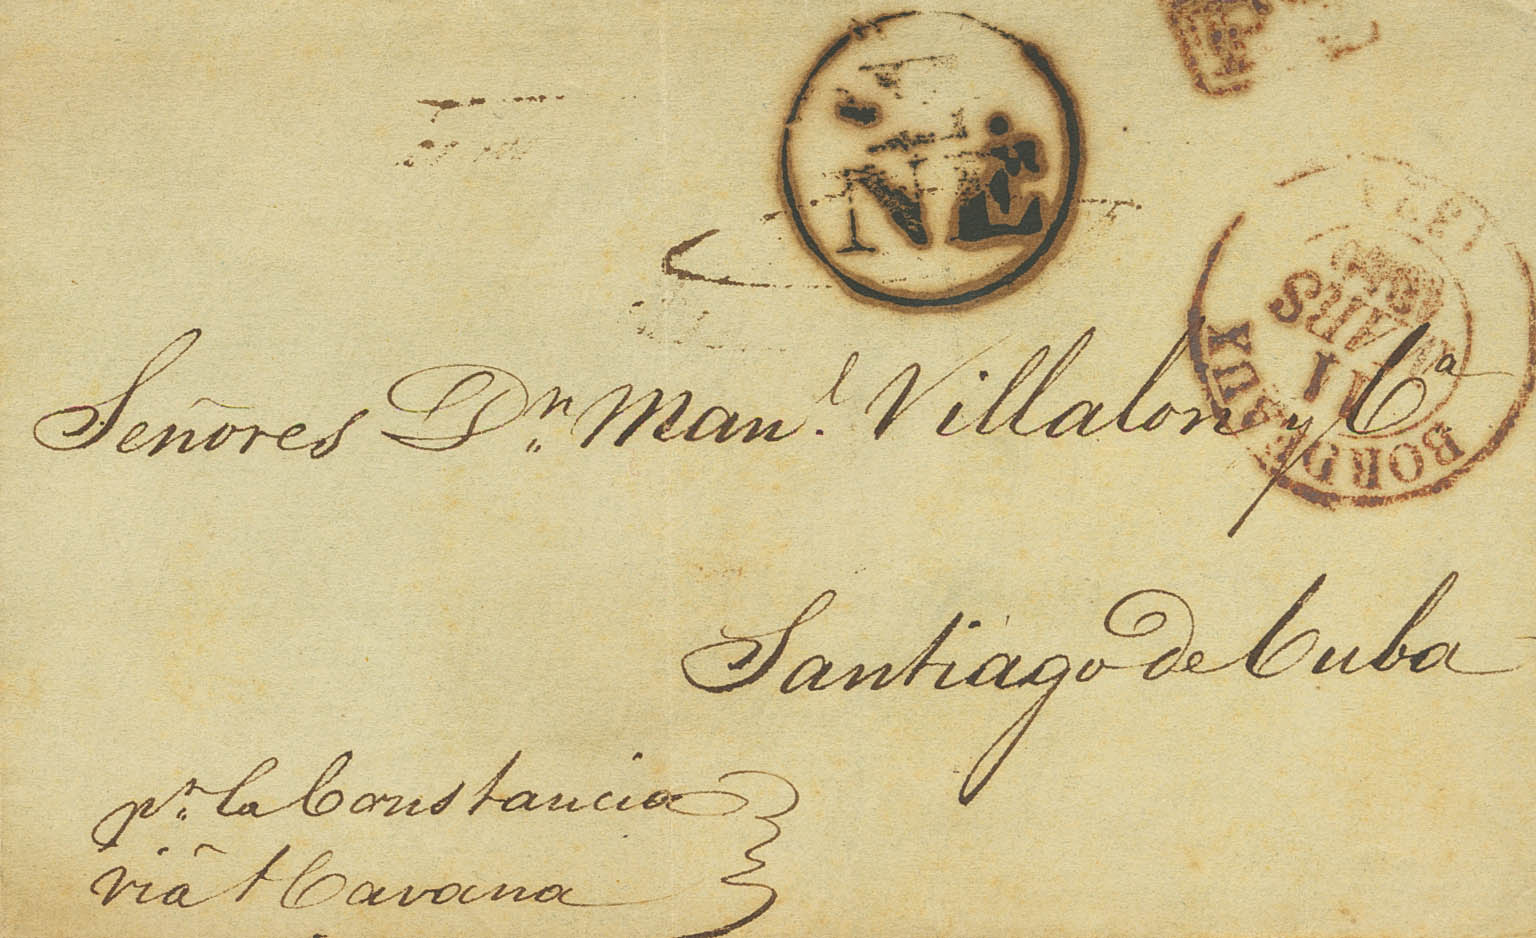 NE
BORDEAUX
11
MARS
Señores Dn. Manl. Villalon y Ca
Santiago de Cuba
pr. la Constancia
via Havana